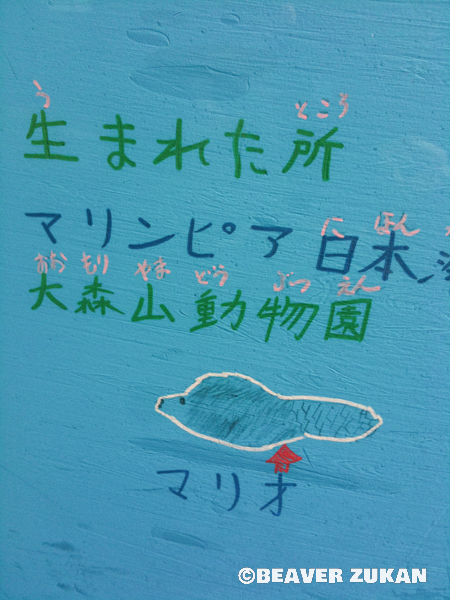 う ところ
生まれた所
にほん
マリンピア日本
おおもりやまどうぶつえん
大森山動物園
マリオ
©BEAVER ZUKAN